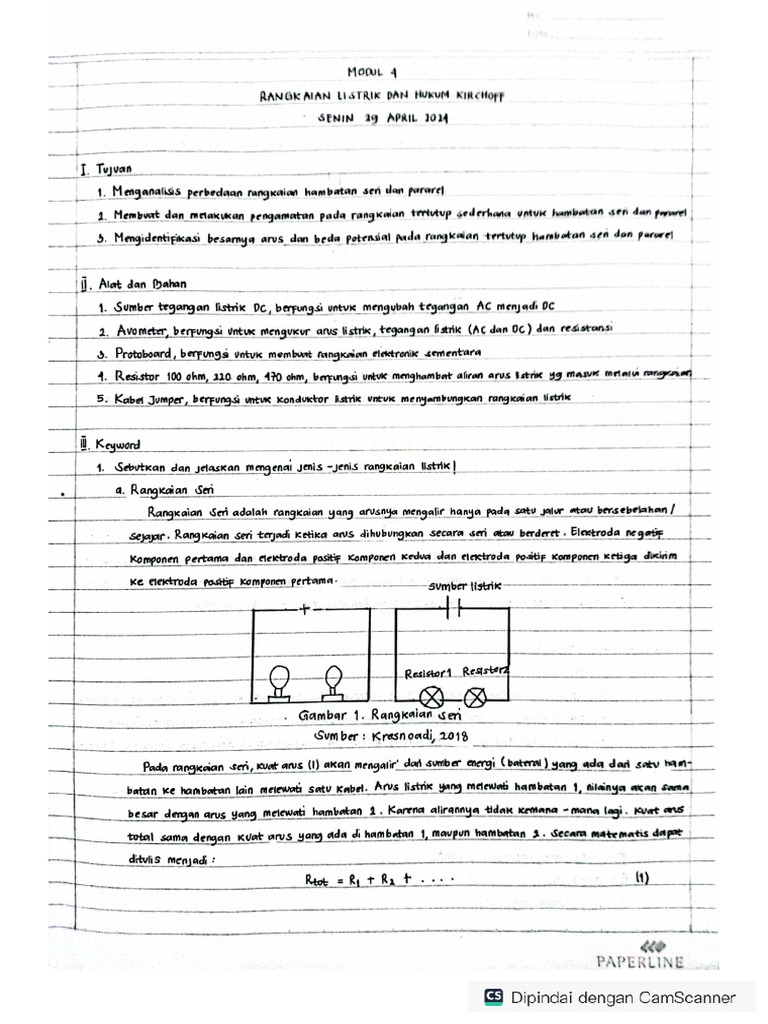 No :
Date :
MODUL 4
RANGKAIAN LISTRIK DAN HUKUM KIRCHOFF
SENIN 29 APRIL 2024
I. Tujuan
1. Menganalisis perbedaan rangkaian hambatan seri dan pararel
2. Membuat dan melakukan pengamatan pada rangkaian tertutup sederhana untuk hambatan seri dan pararel
3. Mengidentifikasi besarnya arus dan beda potensial pada rangkaian tertutup hambatan seri dan pararel
II. Alat dan Bahan
1. Sumber tegangan listrik DC, berfungsi untuk mengubah tegangan AC menjadi DC
2. Avometer, berfungsi untuk mengukur arus listrik, tegangan listrik (AC dan DC) dan resistansi
3. Protoboard, berfungsi untuk membuat rangkaian elektronik sementara
4. Resistor 100 ohm, 220 ohm, 470 ohm, berfungsi untuk menghambat aliran arus listrik yg masuk melalui rangkaian
5. Kabel Jumper, berfungsi untuk konduktor listrik untuk menyambungkan rangkaian listrik
III. Keyword
1. Sebutkan dan jelaskan mengenai jenis-jenis rangkaian listrik!
a. Rangkaian Seri
Rangkaian Seri adalah rangkaian yang arusnya mengalir hanya pada satu jalur atau bersebelahan/
sejajar. Rangkaian seri terjadi ketika arus dihubungkan secara seri atau berderet. Elektroda negatif
komponen pertama dan elektroda positif komponen kedua dan elektroda positif komponen ketiga dikirim
ke elektroda positif komponen pertama.
sumber listrik
+
Resistor 1 Resistor 2
Gambar 1. Rangkaian seri
Sumber : Kresnoadi, 2018
Pada rangkaian seri, kuat arus (I) akan mengalir dari sumber energi (baterai) yang ada dari satu ham-
batan ke hambatan lain melewati satu kabel. Arus listrik yang melewati hambatan 1, nilainya akan sama
besar dengan arus yang melewati hambatan 2. Karena alirannya tidak kemana-mana lagi. Kuat arus
total sama dengan kuat arus yang ada di hambatan 1, maupun hambatan 2. Secara matematis dapat
ditulis menjadi :
Rtot = R₁ + R₂ + .... (1)
PAPERLINE
CS Dipindai dengan CamScanner